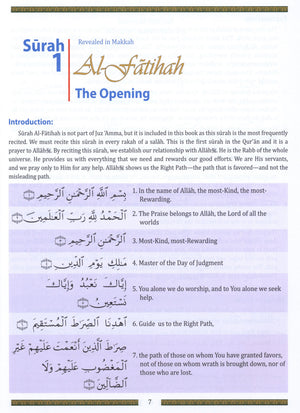 Sūrah
1
Revealed in Makkah
Al-Fātihah
The Opening
Introduction:
Sūrah Al-Fātihah is not part of Juz 'Amma, but it is included in this book as this sūrah is the most frequently
recited. We must recite this sūrah in every rakah of a salāh. This is the first sūrah in the Qur'ān and it is a
prayer to Allāhﷻ. By reciting this sūrah, we establish our relationship with Allāhﷻ. He is the Rabb of the whole
universe. He provides us with everything that we need and rewards our good efforts. We are His servants,
and we pray only to Him for any help. Allāhﷻ shows us the Right Path—the path that is favored—and not the
misleading path.
بِسْمِ اللَّهِ الرَّحْمَٰنِ الرَّحِيمِ ۝١
1. In the name of Allāh, the most-Kind, the most-
Rewarding.
الْحَمْدُ لِلَّهِ رَبِّ الْعَالَمِينَ ۝٢
2. The Praise belongs to Allāh, the Lord of all the
worlds
الرَّحْمَٰنِ الرَّحِيمِ ۝٣
3. Most-Kind, most-Rewarding
مَالِكِ يَوْمِ الدِّينِ ۝٤
4. Master of the Day of Judgment
إِيَّاكَ نَعْبُدُ وَإِيَّاكَ
نَسْتَعِينُ ۝٥
5. You alone we do worship, and to You alone we seek
help.
اهْدِنَا الصِّرَاطَ الْمُسْتَقِيمَ ۝٦
6. Guide us to the Right Path,
صِرَاطَ الَّذِينَ أَنْعَمْتَ عَلَيْهِمْ غَيْرِ
الْمَغْضُوبِ عَلَيْهِمْ وَلَا
الضَّالِّينَ ۝٧
7. the path of those on whom You have granted favors,
not of those on whom wrath is brought down, nor of
those who are lost.
7